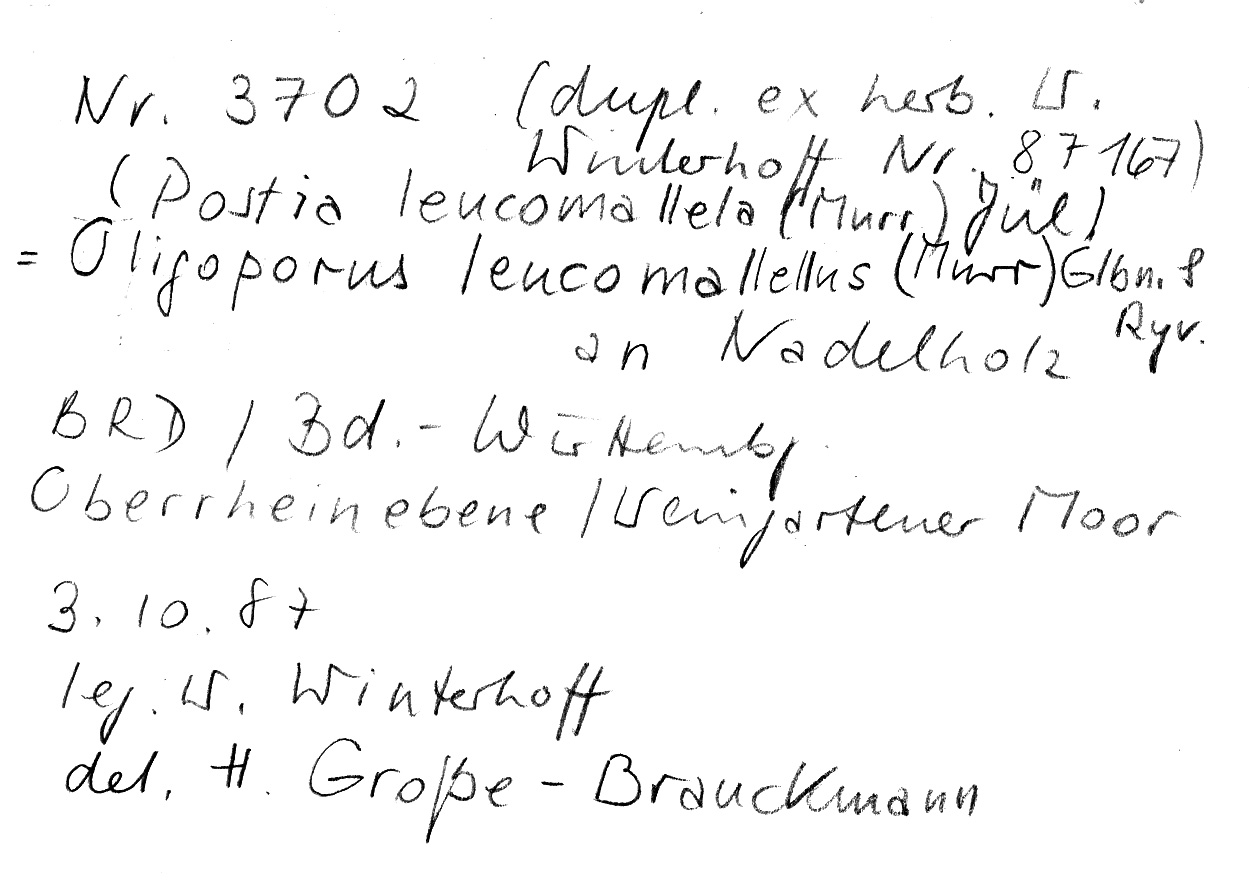 Nr. 3702 (dupl. ex herb. W.
Winterhoff Nr. 87167)
(Postia leucomallela (Murr.) Jül)
= Oligoporus leucomallellus (Murr) Glbn. &
Ryv.
an Nadelholz
BRD / Bd.- Württembg.
Oberrheinebene / Weingartener Moor
3. 10. 87
leg. W. Winterhoff
det. H. Große - Brauckmann